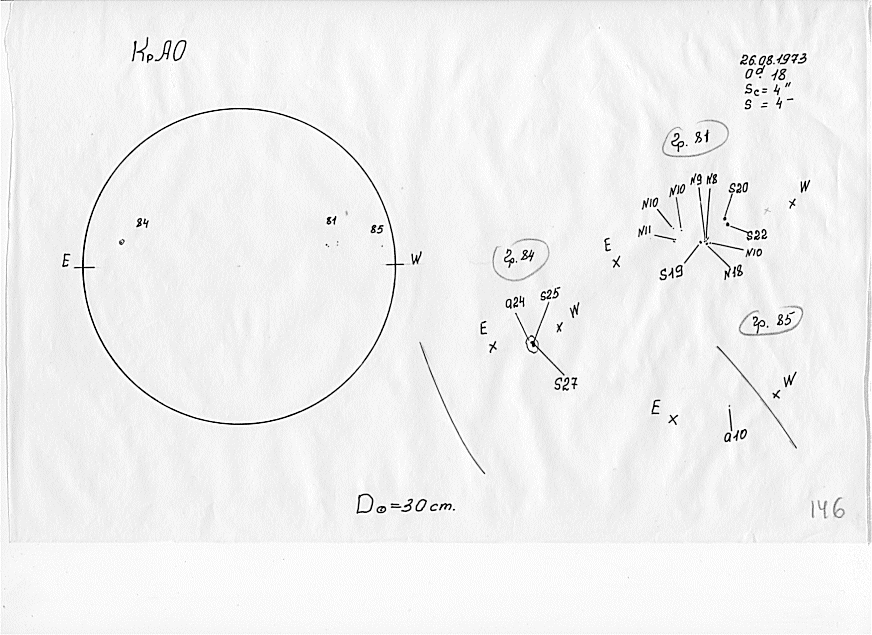 КрАО
26.08.1973
0ᵈ. 18
Sc = 4"
S = 4⁻
гр. 81
N10
N10
N9
N8
S20
W
N11
S22
E
N10
S19
N18
84
81
85
E
W
гр. 84
a24
S25
W
E
S27
гр. 85
W
E
a10
D⊙=30 cm.
146